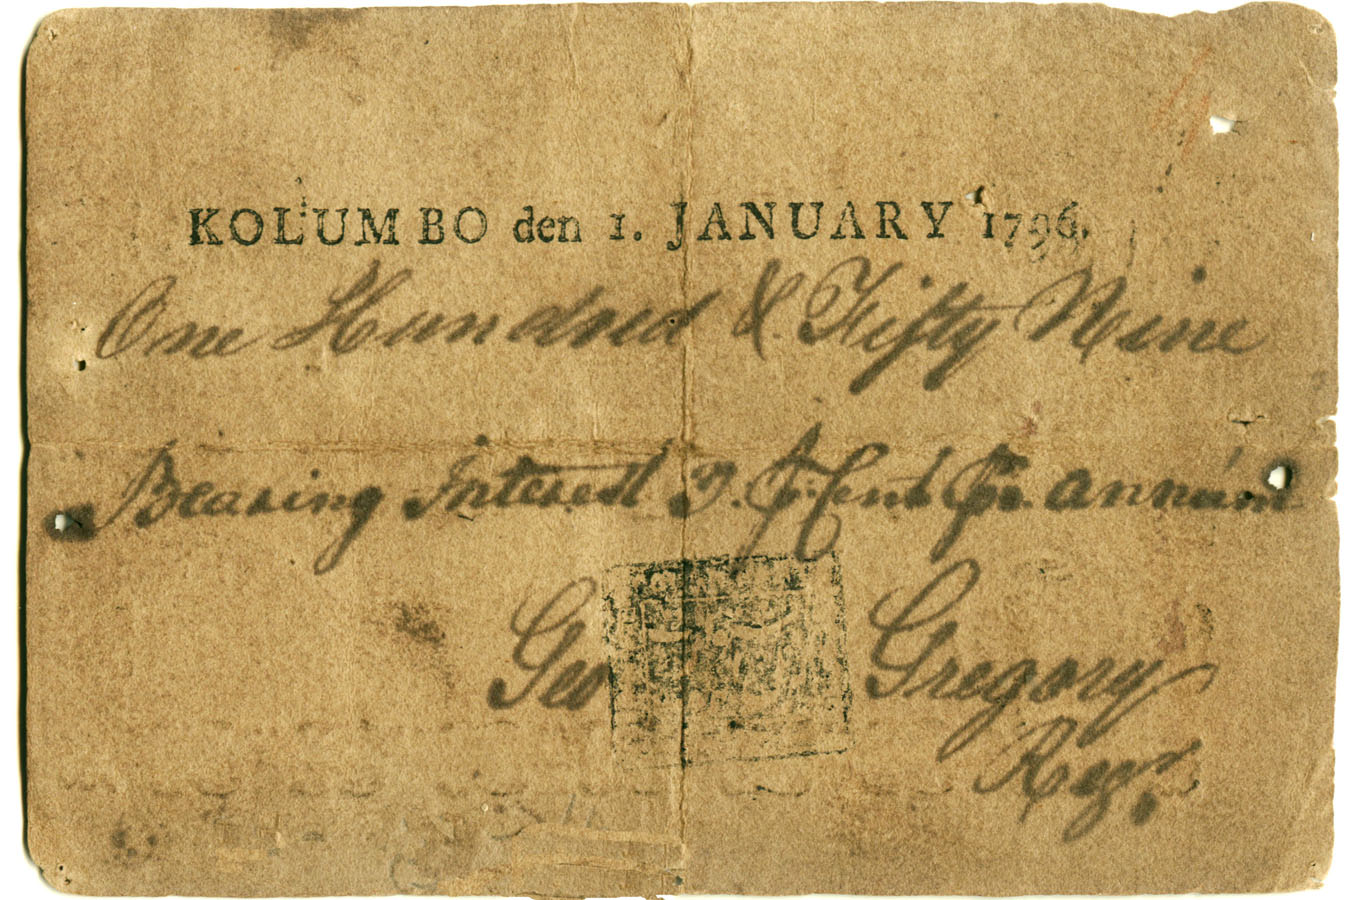 KOLUMBO den 1. JANUARY 1796.
One Hundred & Fifty Nine
Bearing Interest 3. P. Cent Pr. annum
Geo Gregory
Regr.